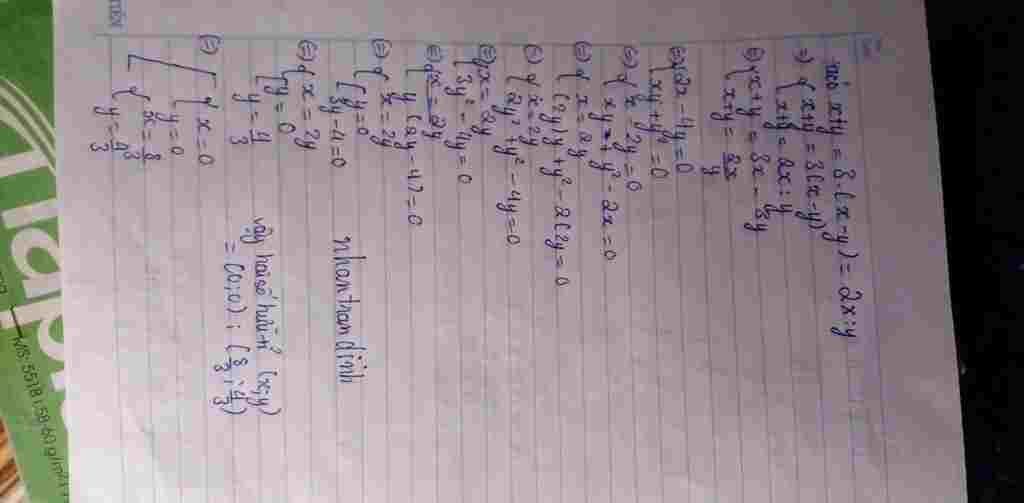 x+y = 3.(x-y) = 2x:y
=> { x+y = 3(x-y)
x+y = 2x:y
<=> { x+y = 3x-3y
x+y = 2x/y
<=> { 2x-4y=0
<=> { x-2y=0
xy+y²-2x=0
<=> { x=2y
(2y)y+y²-2(2y=0
<=> { x=2y
2y²+y²-4y=0
<=> { x=2y
3y²-4y=0
<=> { x=2y
<=> { x=2y
[ y=0
3y-4=0
<=> { x=2y
[ y=0
y=4/3
<=> [ { x=0
y=0
{ x=8/3
y=4/3
nhanthandinh
vậy hai số hữu tỉ (x;y)
= (0;0) ; (8/3;4/3)
MS:5518 | 58-60g/m2